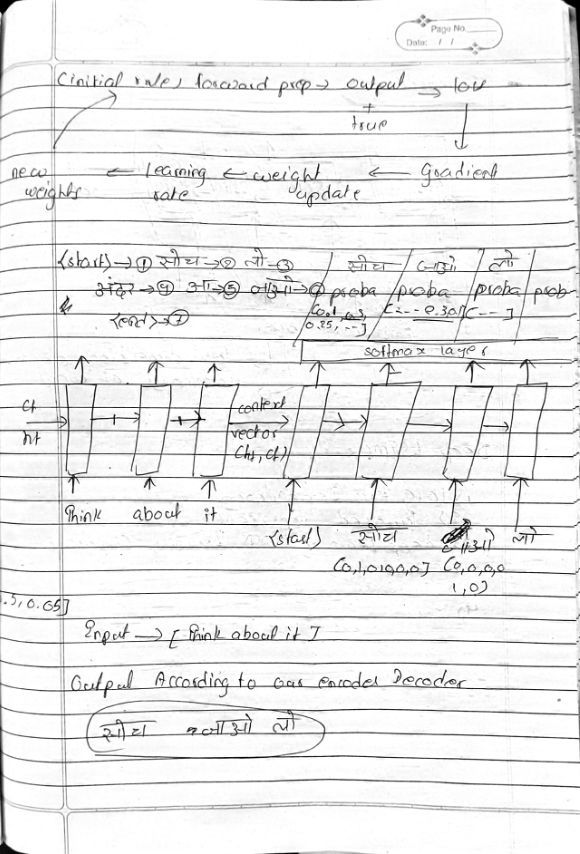 Page No.
Date: / /
(initial rate, forward prop → output → loss
+
true
new weights ← Learning rate ← weight update ← Gradient
<start> → ① सोच → ② लो → ③ / सोच / जाओ / लो
अंदर → ④ आ → ⑤ जाओ → ⑥ proba proba proba prob
<end> → ⑦
softmax layer
ct
ht
context
vector
(ht, ct)
Think about it
<start> सोच जाओ लो
(0,1,0,0,0,0] (0,0,0,0
1,0)
.5, 0.05]
Input → [Think about it]
Output According to our encoder Decoder
सोच जाओ लो